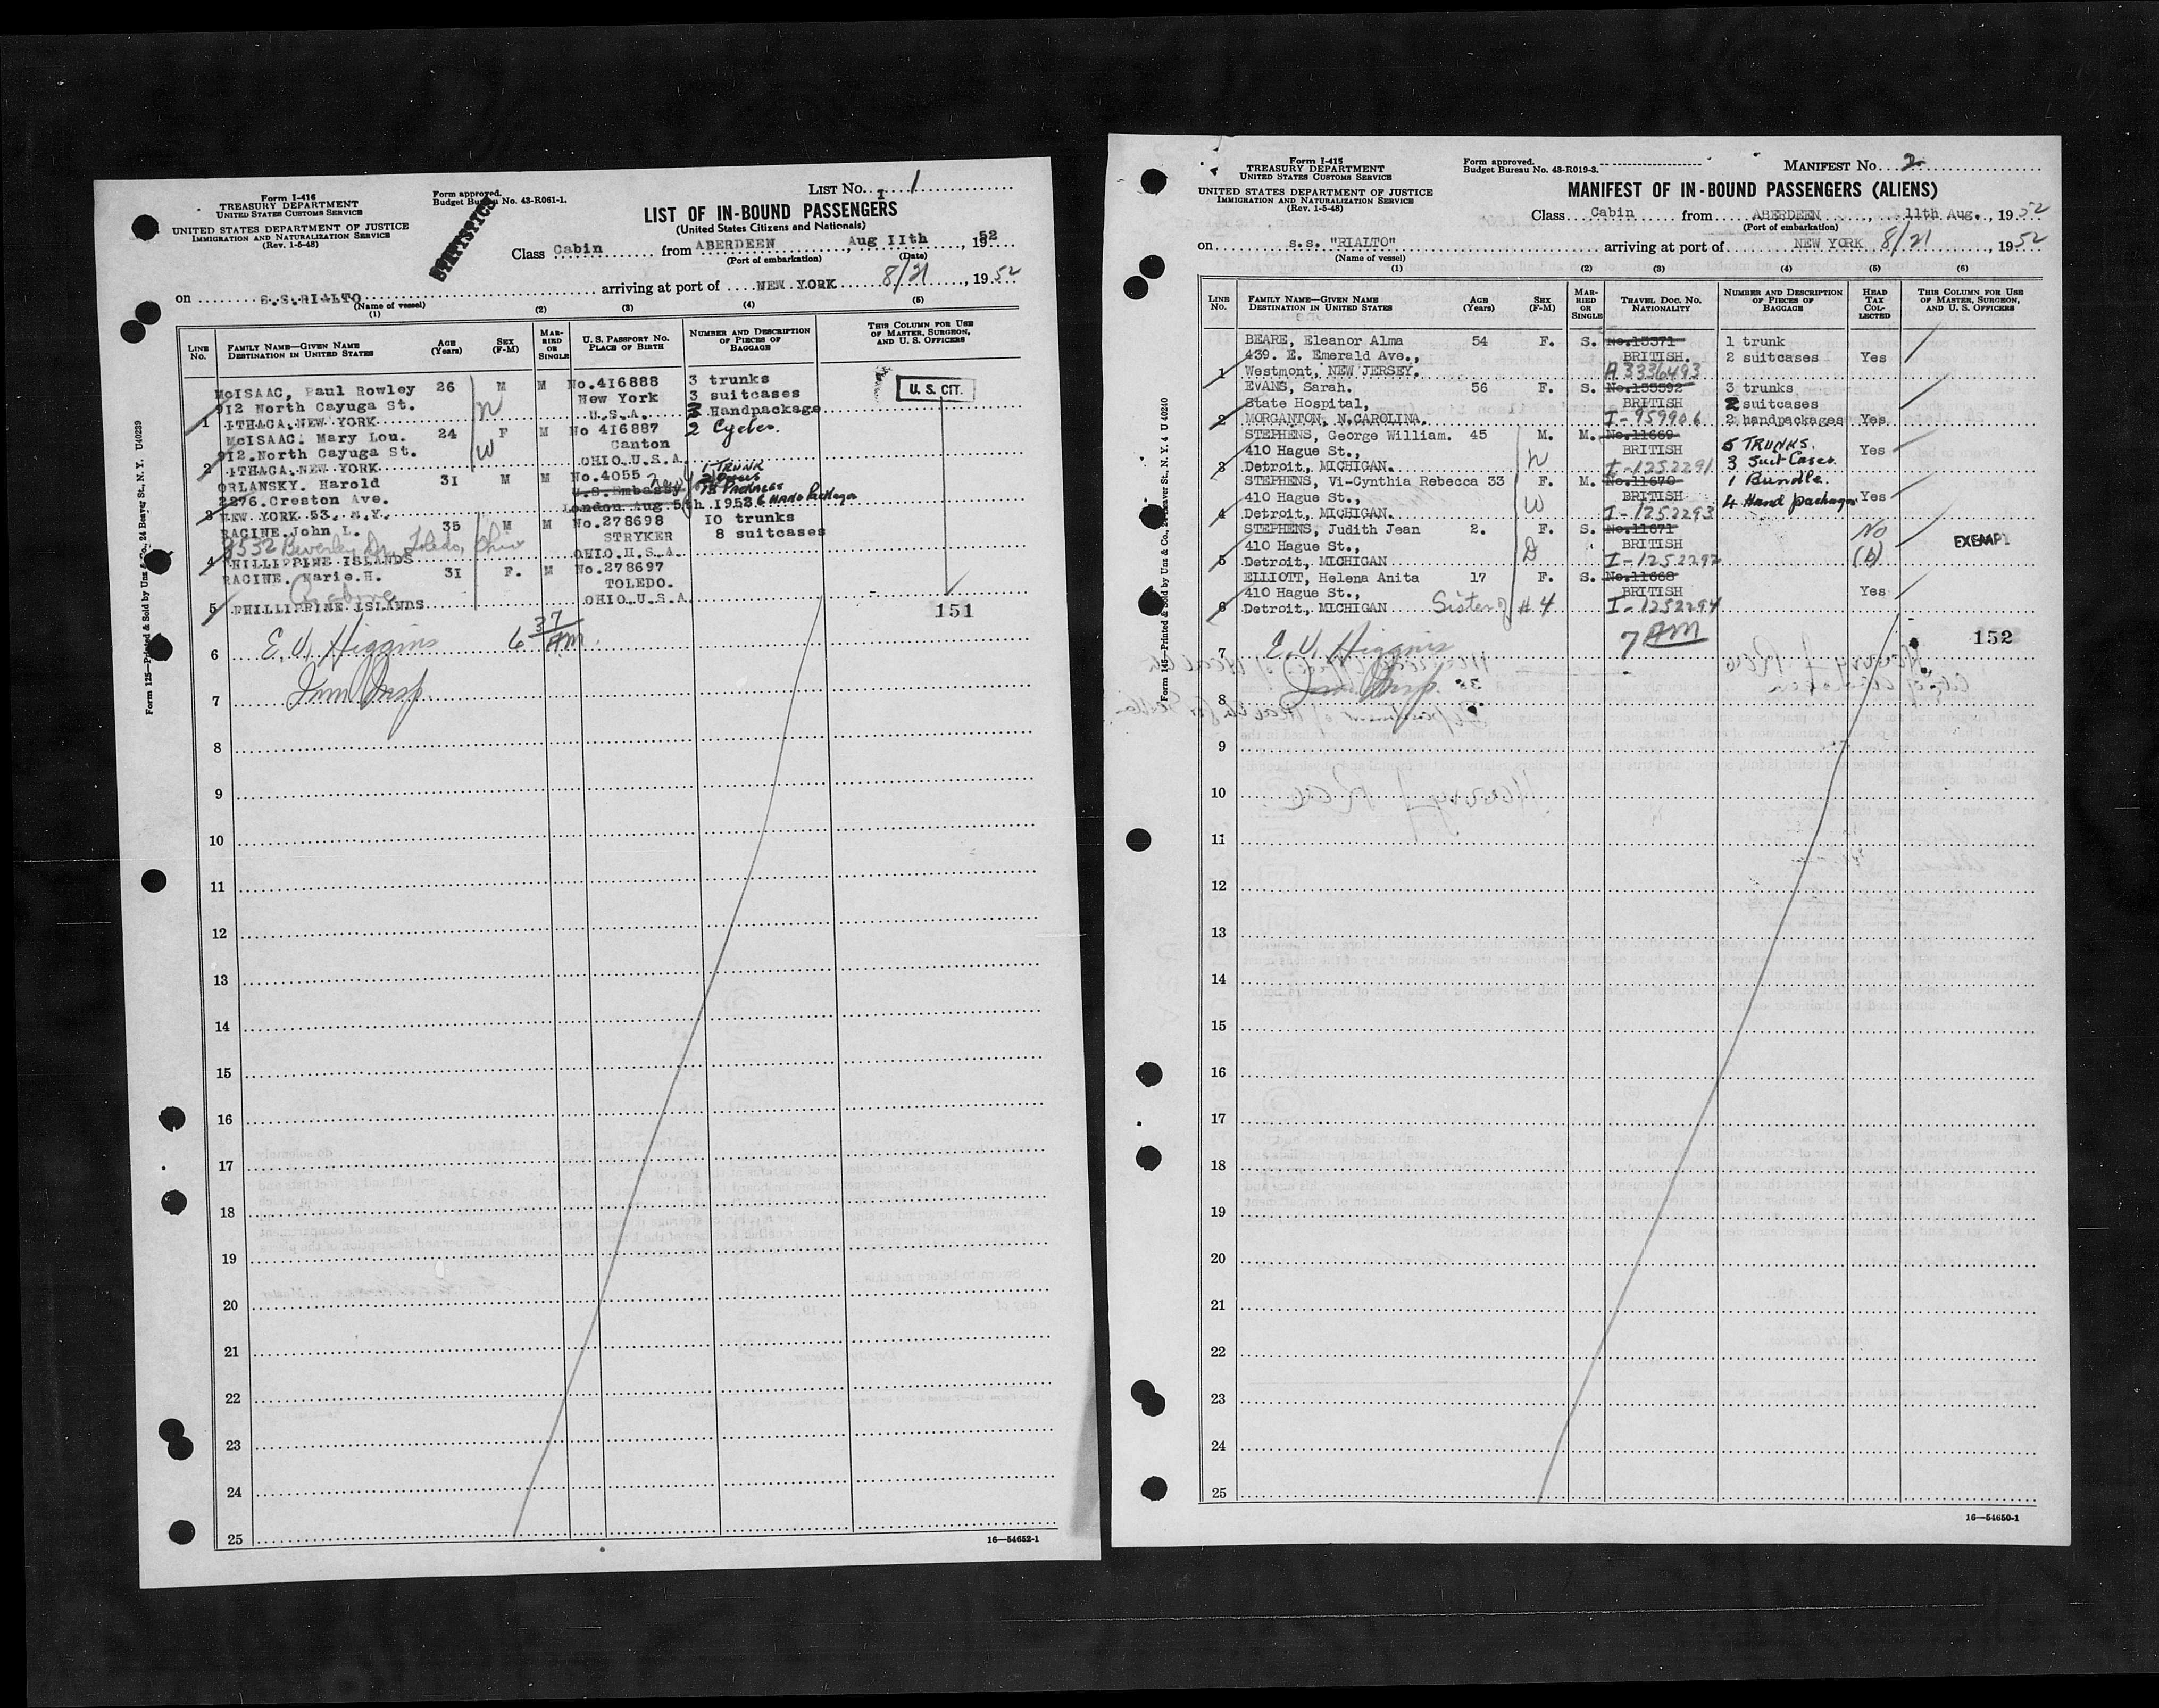 Form I-416
TREASURY DEPARTMENT
UNITED STATES CUSTOMS SERVICE
UNITED STATES DEPARTMENT OF JUSTICE
IMMIGRATION AND NATURALIZATION SERVICE
(Rev. 1-5-48)
Form approved.
Budget Bureau No. 43-R061-1.
STATISTICS
LIST No. 1
I
LIST OF IN-BOUND PASSENGERS
(United States Citizens and Nationals)
Class Cabin from ABERDEEN, Aug IIth, 1952
(Port of embarkation) (Date)
on S.S.RIALTO arriving at port of NEW YORK 8/21, 1952
(Name of vessel)
(1) (2) (3) (4) (5)
LINE No. FAMILY NAME—GIVEN NAME DESTINATION IN UNITED STATES AGE (Years) SEX (F-M) MARRIED OR SINGLE U. S. PASSPORT NO. PLACE OF BIRTH NUMBER AND DESCRIPTION OF PIECES OF BAGGAGE THIS COLUMN FOR USE OF MASTER, SURGEON, AND U. S. OFFICERS
McISAAC, Paul Rowley 26 M M No.4I6888 3 trunks U. S. CIT.
912 North Cayuga St. New York 3 suitcases
1 ITHACA.NEW YORK U.S.A. 3 Handpackage
McISAAC. Mary Lou. 24 F M No 4I6887 2 Cycles.
912.North Cayuga St. W Canton
2 ITHACA.NEW YORK OHIO.U.S.A.
ORLANSKY. Harold 3I M M No.4055 1 TRUNK
2276.Creston Ave. U.S.Embassy New PACKAGES
3 NEW YORK 53. N.Y. London Aug 5th 1952 6 HAND Packages
RACINE.John L. 35 M M No.278698 IO trunks
3532 Beverley Dr. Toledo, Ohio STRYKER 8 suitcases
4 PHILLIPPINE ISLANDS OHIO.U.S.A.
RACINE. Marie.H. 3I F. M No.278697
TOLEDO.
5 PHILLIPPINE ISLANDS OHIO.U.S.A. 151
6 E. V. Higgins 6 37 AM.
7 Imm Insp.
8
9
10
11
12
13
14
15
16
17
18
19
20
21
22
23
24
25
16—54652-1
Form 125—Printed & Sold by Unz & Co., 24 Beaver St., N. Y. U40239
Form I-415
TREASURY DEPARTMENT
UNITED STATES CUSTOMS SERVICE
UNITED STATES DEPARTMENT OF JUSTICE
IMMIGRATION AND NATURALIZATION SERVICE
(Rev. 1-5-48)
Form approved.
Budget Bureau No. 43-R019-3.
MANIFEST No. 2
MANIFEST OF IN-BOUND PASSENGERS (ALIENS)
Class Cabin from ABERDEEN, 11th Aug., 1952
(Port of embarkation)
on s.s. "RIALTO" arriving at port of NEW YORK 8/21, 1952
(Name of vessel)
(1) (2) (3) (4) (5) (6)
LINE No. FAMILY NAME—GIVEN NAME DESTINATION IN UNITED STATES AGE (Years) SEX (F-M) MARRIED OR SINGLE TRAVEL DOC. NO. NATIONALITY NUMBER AND DESCRIPTION OF PIECES OF BAGGAGE HEAD TAX COLLECTED THIS COLUMN FOR USE OF MASTER, SURGEON, AND U. S. OFFICERS
BEARE, Eleanor Alma 54 F. S. No.15371 1 trunk
439. E. Emerald Ave., BRITISH. 2 suitcases Yes
1 Westmont, NEW JERSEY. A 3336493
EVANS, Sarah. 56 F. S. No.155592 3 trunks
State Hospital, BRITISH 2 suitcases
2 MORGANTON, N.CAROLINA. I-959906 2 handpackages Yes
STEPHENS, George William. 45 M. M. No.11669 5 TRUNKS.
410 Hague St., BRITISH 3 Suit Cases Yes
3 Detroit, MICHIGAN. I-1252291 1 Bundle.
STEPHENS, Vi-Cynthia Rebecca 33 F. M. No.11670
410 Hague St., W BRITISH 4 Hand packages Yes
4 Detroit, MICHIGAN. I-1252293
STEPHENS, Judith Jean 2. F. S. No.11671 No
410 Hague St., D BRITISH (b) EXEMPT
5 Detroit, MICHIGAN I-1252292
ELLIOTT, Helena Anita 17 F. S. No.11668
410 Hague St., BRITISH Yes
6 Detroit, MICHIGAN Sister of #4 I-1252294
7 E. V. Higgins 7 AM 152
8 Imm Insp.
9
10
11
12
13
14
15
16
17
18
19
20
21
22
23
24
25
16—54650-1
Form 145—Printed & Sold by Unz & Co., 24 Beaver St., N. Y. 4 U 40240